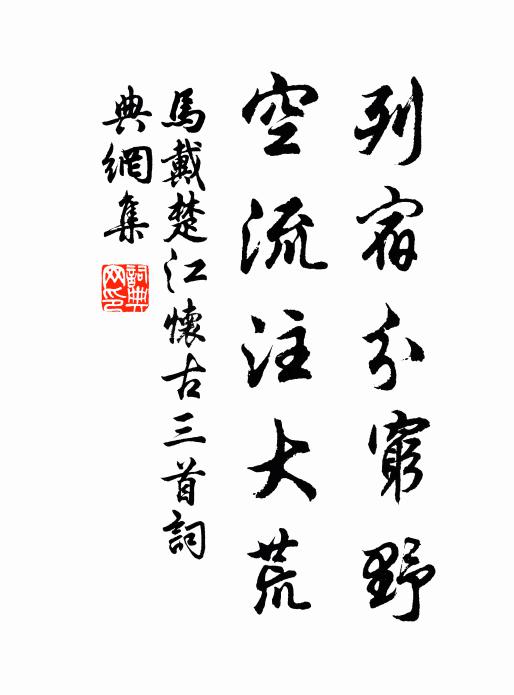 列宿分窮野
空流注大荒
馬戴楚江懷古三首詞
典網集
詞典
网印